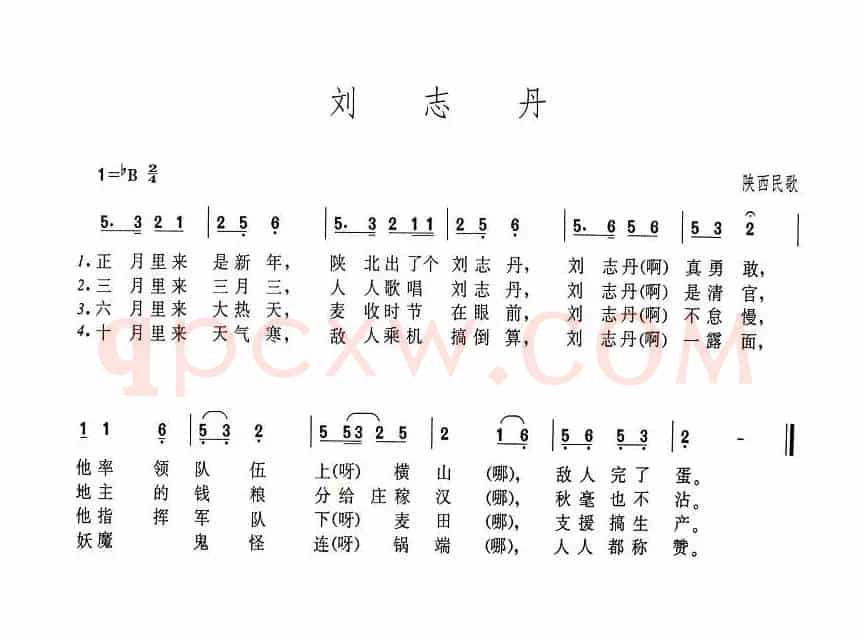 刘志丹
1=♭B 2/4
陕西民歌
5. 3 2 1 | 2 5 6 | 5. 3 2 1 1 1 | 2 5 6 | 5. 6 5 6 | 5 3 2 |
1.正 月里来 是新年, 陕 北出了个 刘志丹, 刘 志丹(啊) 真勇敢,
2.三 月里来 三月三, 人 人歌唱 刘志丹, 刘 志丹(啊) 是清官,
3.六 月里来 大热天, 麦 收时节 在眼前, 刘 志丹(啊) 不怠慢,
4.十 月里来 天气寒, 敌 人乘机 搞倒算, 刘 志丹(啊) 一露面,
qpcxw.com
1 1 6 | 5 3 2 | 5 5 3 2 5 | 2 1 6 | 5 6 5 3 | 2 - ‖
他率 领 队 伍 上(呀) 横 山 (哪), 敌人完了 蛋。
地主 的 钱 粮 分给 庄稼 汉 (哪), 秋毫也不 沾。
他指 挥 军 队 下(呀) 麦 田 (哪), 支援搞生 产。
妖魔 鬼 怪 连(呀) 锅 端 (哪), 人人都称 赞。